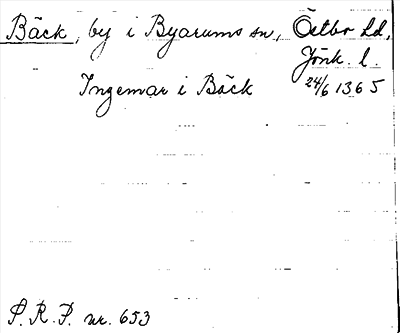 Bäck, by i Byarums sn, Östbo hd,
Jönk. l.
Ingemar i Bäck 24/6 1365
P. R. P. nr. 653